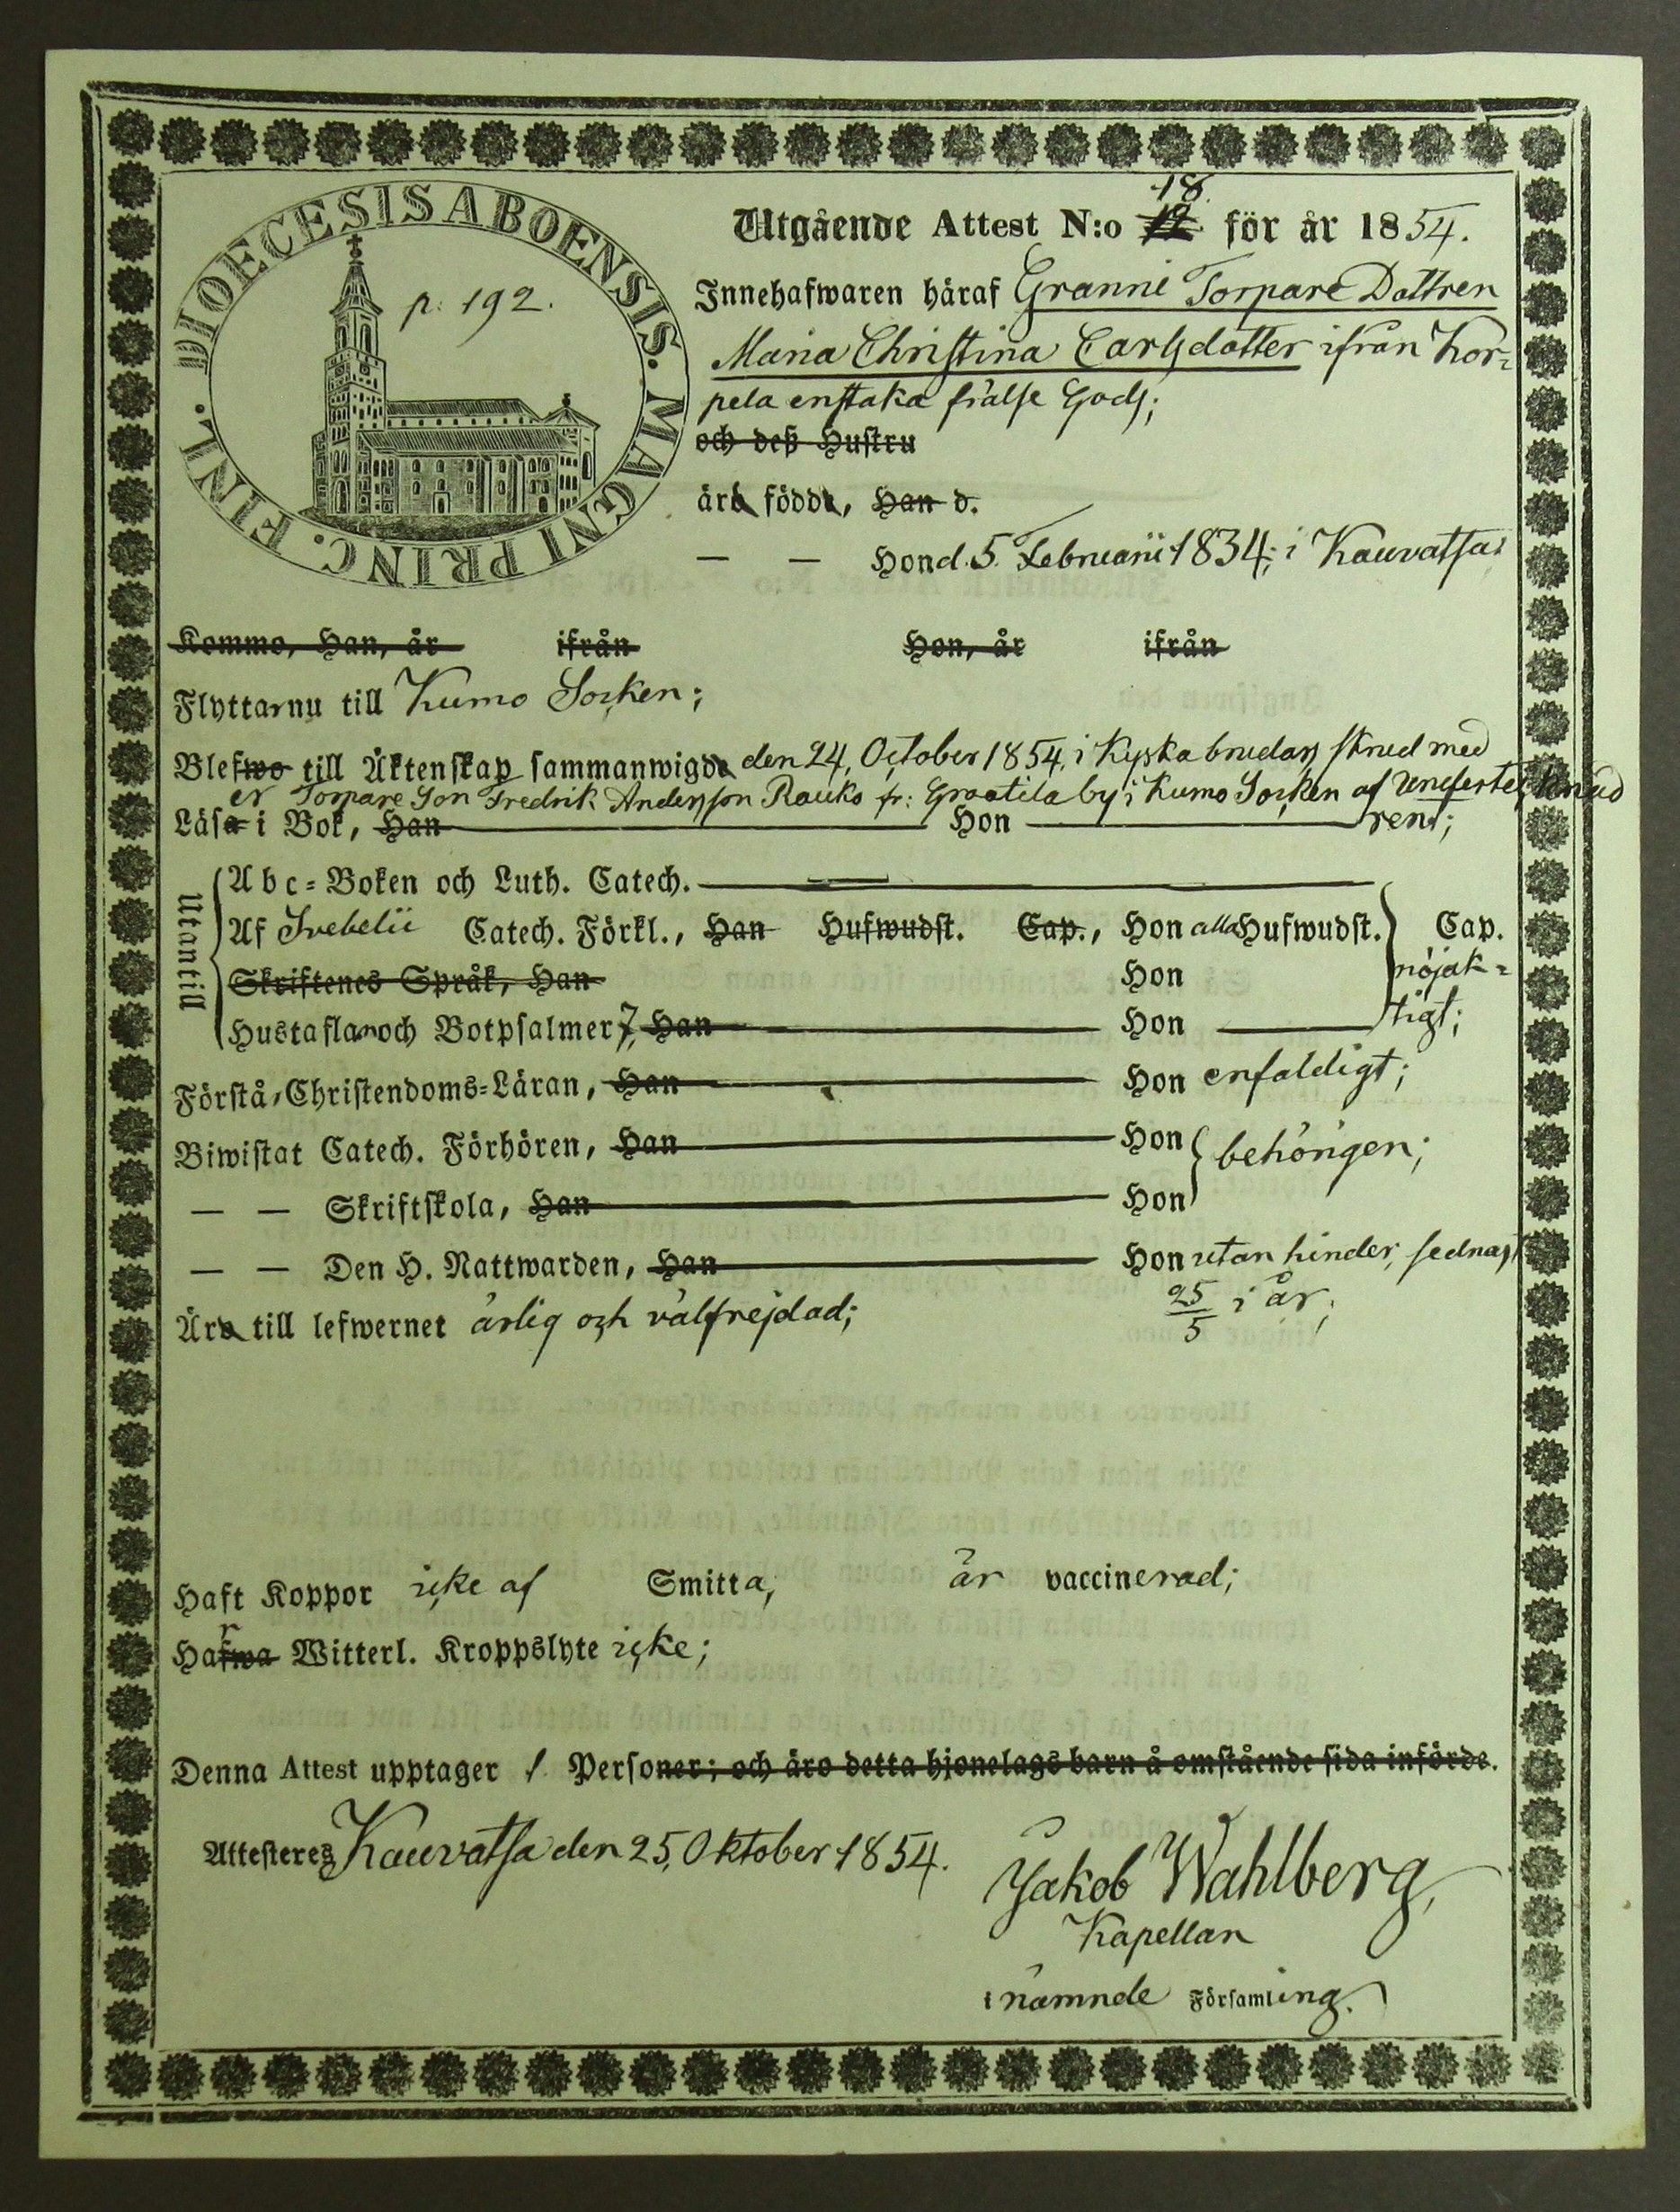 DIOECESIS ABOENSIS. MAGNI PRINC. FINL.
p. 192.
18.
Utgående Attest N:o 19. för år 1854.
Innehafwaren häraf Granni Torpare Dottren
Maria Christina Carlsdotter ifrån Kor-
pela enstaka frälse Gods;
och deß Hustru
äro födde, Han d.
— — Hon d. 5. Februarii 1834; i Kauvatsa;
Kommo, Han, år ifrån Hon, år ifrån
Flyttar nu till Kumo Socken;
Blefwo till Äktenskap sammanwigde den 24, October 1854, i Kyska brudars skrud med
Torpare Son Fredrik Andersson Rauko fr: Graatila by i Kumo Socken af Undertecknad
Läsa i Bok, Han Hon rent;
Utantill
Abc-Boken och Luth. Catech.
Af Svebelii Catech. Förkl., Han Hufwudst. Cap., Hon alla Hufwudst. Cap.
Skriftenes Språk, Han Hon nöjak-
Hustaflan och Botpsalmer 7, Han Hon tigt;
Förstå, Christendoms-Läran, Han Hon enfaldigt;
Biwistat Catech. Förhören, Han Hon behörigen;
— — Skriftskola, Han Hon
— — Den H. Nattwarden, Han Hon utan hinder, sednast
25/5 i år;
Äro till lefwernet ärlig och välfrejdad;
Haft Koppor icke af Smitta, är vaccinerad;
Hafwa Witterl. Kroppslyte icke;
Denna Attest upptager 1 Personer; och äro detta hjonelags barn å omstående sida införde.
Attesteres Kauvatsa den 25, Oktober 1854.
Jakob Wahlberg,
Kapellan
i nämnde Församling.